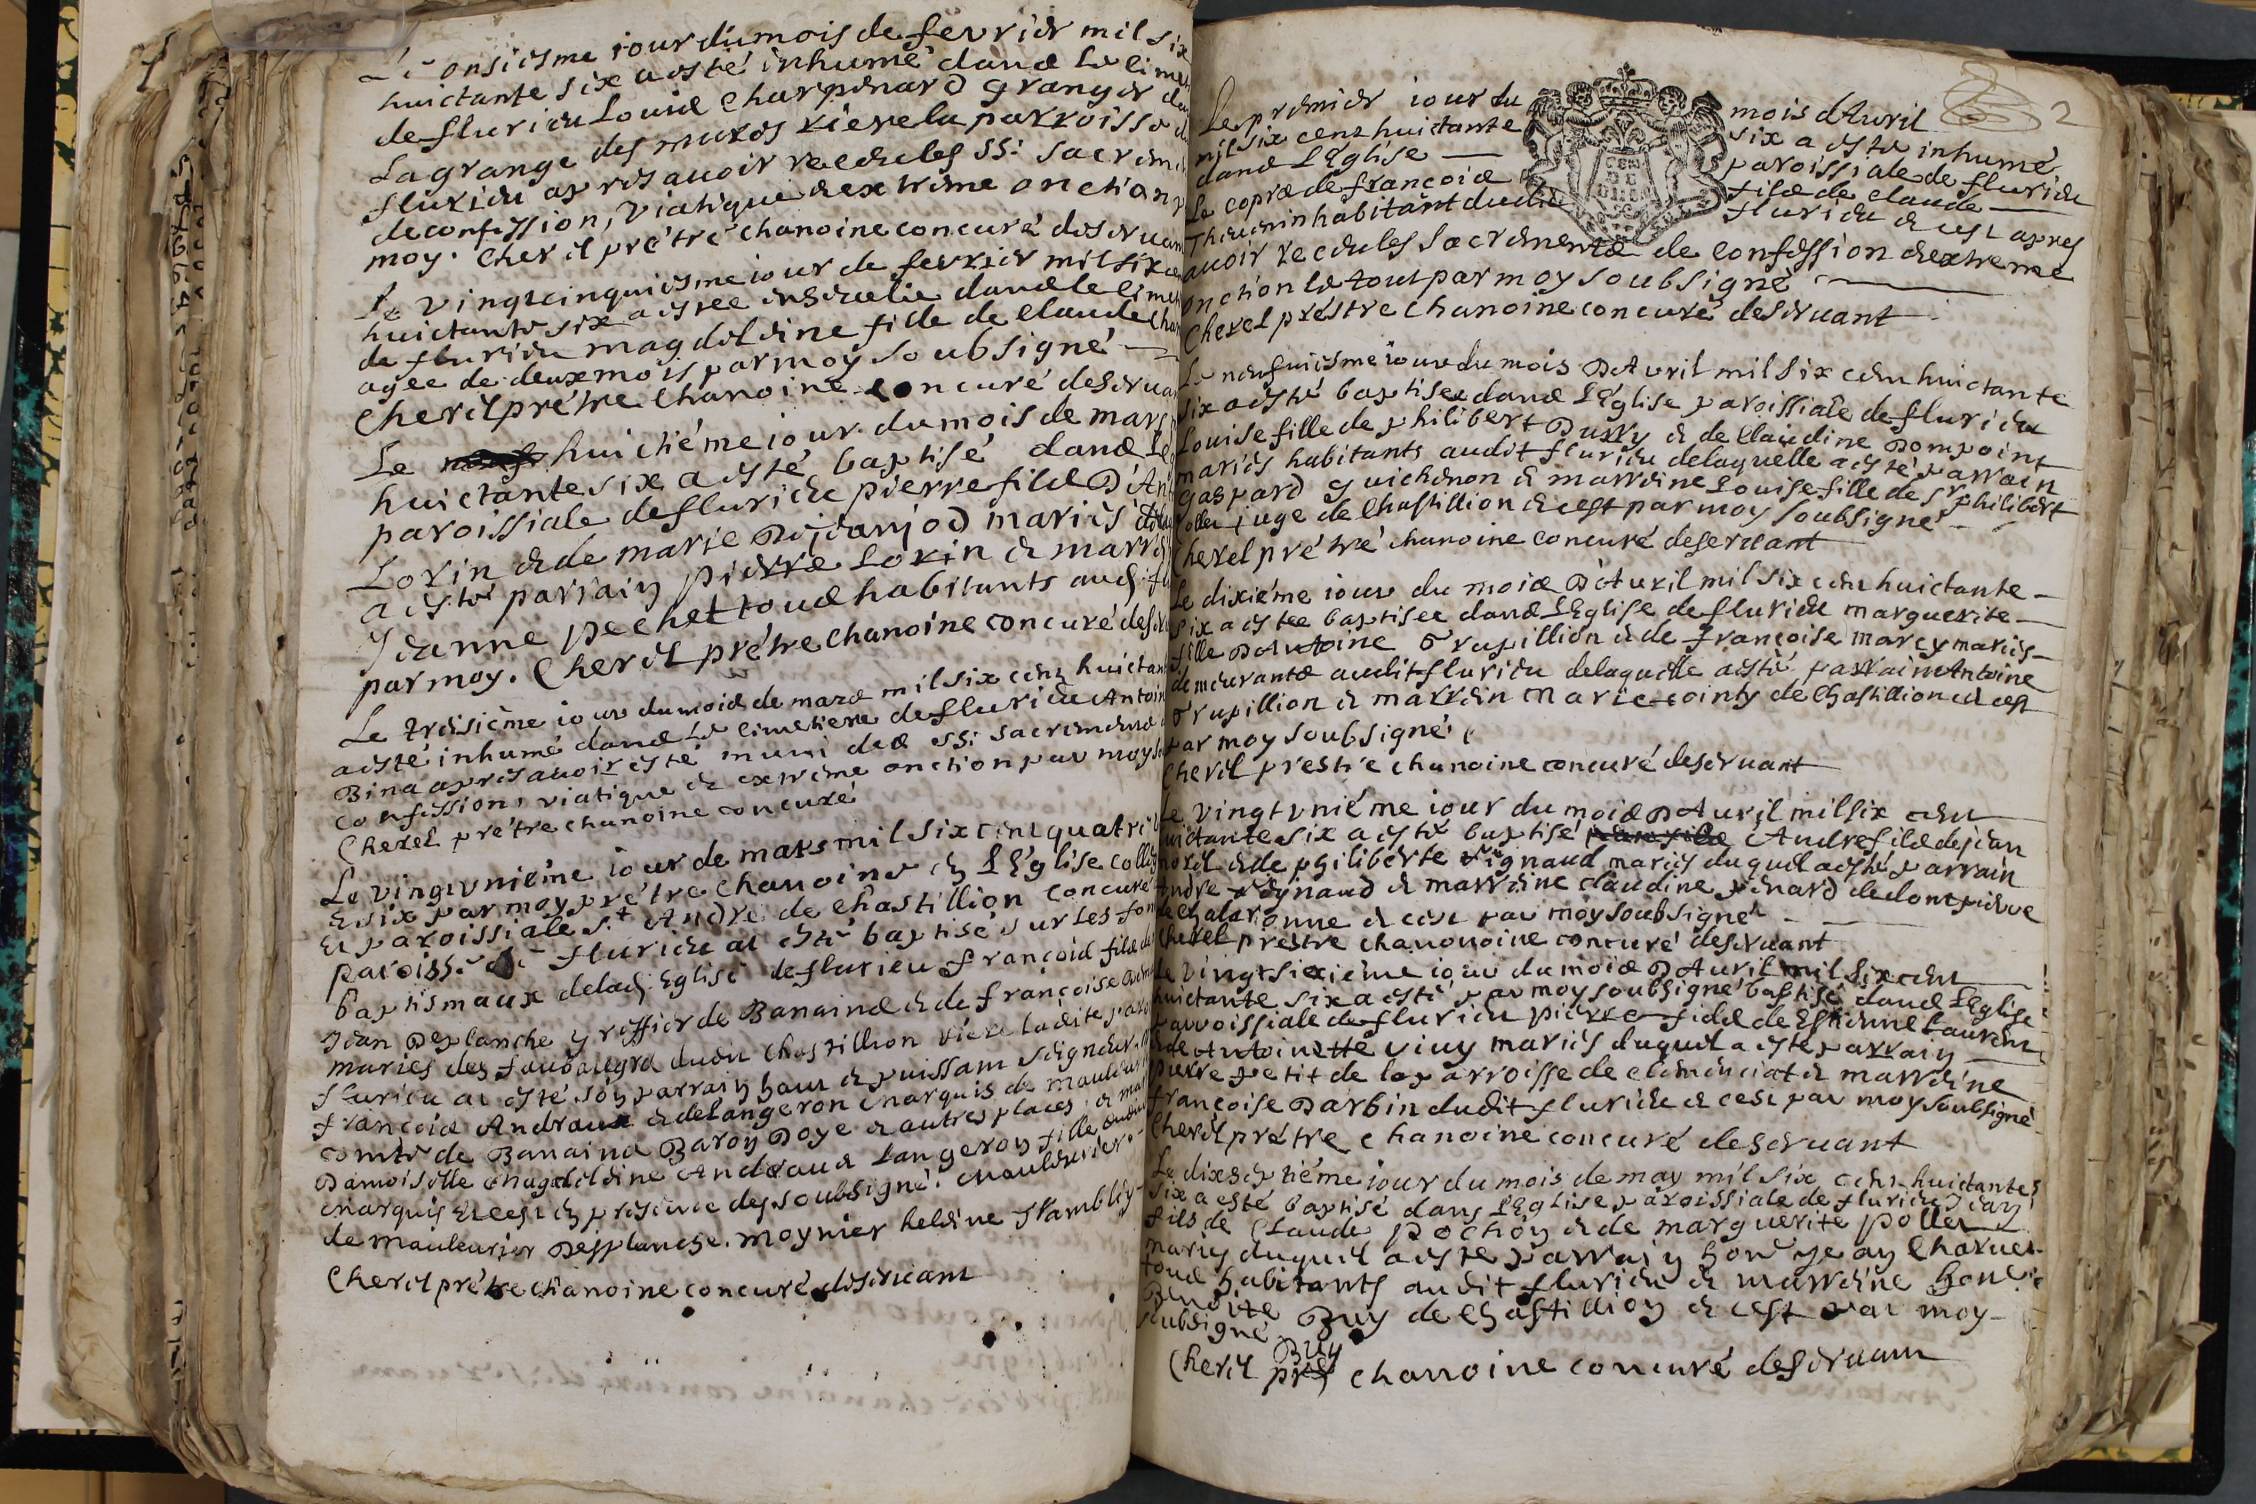 Le onsiesme iour du mois de fevrier mil six
huictante six a esté inhumé dans le cime
de flurieu Louis Charpenard granger de
La grange des mures riere la parroisse de
flurieu apres avoir receu les sst sacreme
de confession, viatique et extreme onction p
moy. Cherel prétre chanoine concuré deservan
Le vingtcinquiesme iour de fevrier mil six ce
huictante six a estee ensevelie dans le cime
de flurieu magdeleine fille de Claude Cha
agee de deux mois par moy soubsigné
Cherel prétre Chanoine concuré deserua
Le huictiéme iour du mois de mars
huictante six a esté baptisé dans Le
paroissiale de flurieu pierre fils D'An
Lorin et de marie Dejeanjod mariés
a esté parrain pierre Lorin et marr
Jeanne pechet tous habitants aud. fl
par moy. Cherel prétre chanoine concuré dese
Le treisiéme iour du mois de mars mil six cent huictan
a esté inhumé dans Le cimetiere de flurieu Antoin
Bina apres avoir esté muni des sst sacrements
confession, viatique et extreme onction par moy
Cherel prétre chanoine concuré
Le vingtuniéme iour de mars mil six cent quatri
et six par moy prétre chanoine en L'Eglise colle
et paroissiale St André de Chastillion concuré
paroisse de flurieu at esté baptisé sur Les fon
baptismaux de lad. Eglise de flurieu françois fils de
Jean Desplanche greffier de Banains et de françoise
mariés des faubourgs dudit Chastillion riere ladite par
flurieu at esté son parrain haut et puissant seigneur
françois Andraux de Langeron marquis de maulevr
comte de Banains Baron Doye et autres places et ma
Damoiselle magdeleine Andraud Langeron fille dudit
marquis et cest en presence des soubsigné. maulevrier
de maulevrier Desplanche. moynier heleine
Cherel prétre chanoine concuré deservant
2
Le premier iour du mois d'Avril
mil six cent huictante six a esté inhumé
dans L'Eglise paroissiale de flurieu
Le coprs de françois fils de claude
Thevenin habitant dudit flurieu et cest apres
avoir receu les sacrements de confession et extreme
onction le tout par moy soubsigné
Cherel prestre chanoine concuré deservant
Le neufuiesme iour du mois D'Avril mil six cent huictante
six a esté baptisee dans L'Eglise paroissiale de flurieu
Louise fille de philibert Durry et de Claudine Dompoint
mariés habitants audit flurieu de laquelle a esté parrain
Gaspard guichenon et marreine Louise fille de Sr philibert
juge de Chastillion et cest par moy soubsigné
Cherel prétré chanoine concuré deservant
Le dixiéme iour du mois D'Auril mil six cent huictante
six a estee baptisee dans L'Eglise de flurieu marguerite
fille D'Antoine Trupillion et de françoise marcy mariés
demeurants audit flurieu de laquelle a esté parrain Antoine
Trupillion et marrein marie cointy de Chastillion et cest
par moy soubsigné
Cherel prestre chanoine concuré deservant
Le vingtuniéme iour du mois D'Auril mil six cent
huictante six a esté baptisé André fils de jean
morel et de philiberte Vignaud mariés duquel a esté parrain
André Veynaud et marreine claudine penard de dompierre
de Chalaronne et cest par moy soubsigné
Cherel prestre chanonoine concuré deservant
Le vingtsixiéme iour du mois D'Auril mil six cent
huictante six a esté par moy soubsigné baptisé dans L'Eglise
parroissiale de flurieu pierre fils de Estienne Laurent
et de Antoinette viuy mariés duquel a esté parrain
pierre petit de la parroisse de clemenciat et marreine
françoise Darbin dudit flurieu et cest par moy soubsigné
Cherel prétre chanoine concuré deservant
Le dixseptiéme iour du mois de may mil six cent huictante
six a esté baptisé dans L'Eglise paroissiale de flurieu Jean
fils de Claude pochon et de marguerite pollet
mariés duquel a esté parrain hon. jean Charvet
tous habitants audit flurieu et marreine hon.
Benoite Buy de Chastillion et cest par moy
soubsigné
Buy
Cherel ptre chanoine concuré deservant